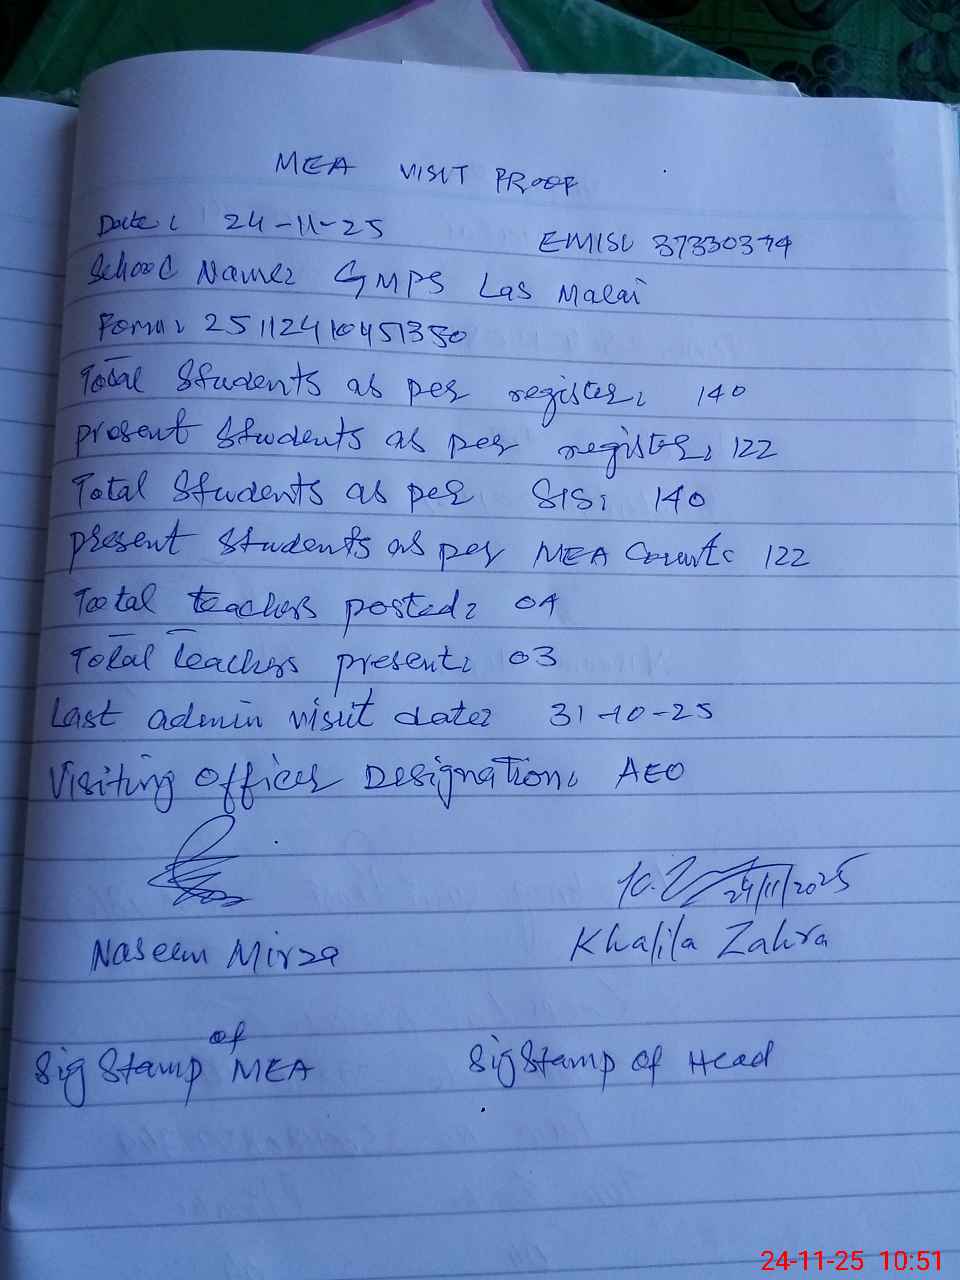 MEA VISIT PROOF
Date: 24-11-25 EMIS: 37330374
School Name: GMPS Las Malai
Form: 25112410451350
Total Students as per register: 140
present Students as per register: 122
Total Students as per SIS: 140
present Students as per MEA Count: 122
Tootal teachers posted: 04
Total Teachers present: 03
Last admin visit date: 31-10-25
Visiting Officer Designation: AEO
24/11/2025
Naseem Mirza Khalila Zahra
Sig Stamp of MEA Sig Stamp of Head
24-11-25 10:51